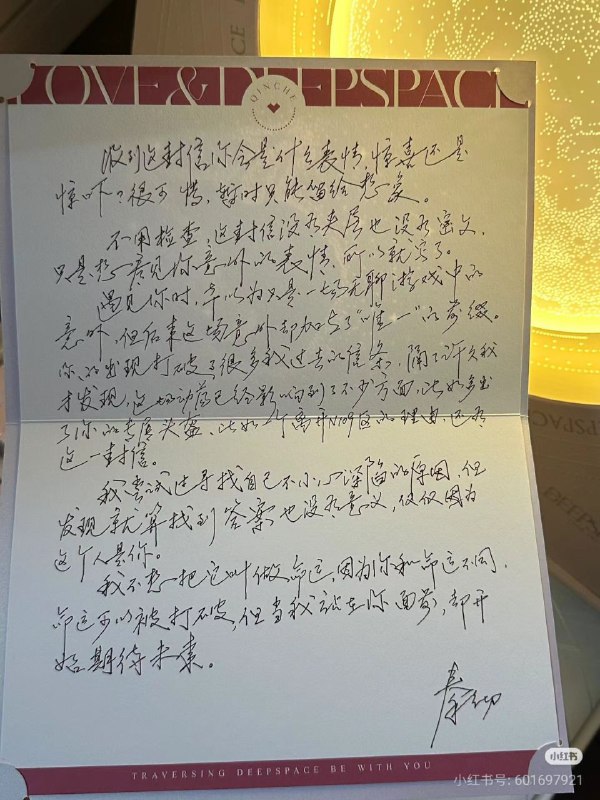 LOVE&DEEPSPACE
QINCHE
收到这封信你会是什么表情，惊喜还是
惊吓？很可惜，暂时只能留给想象。
不用检查，这封信没有夹层也没有密文，
只是想看见你意外的表情，所以就写了。
遇见你时，本以为只是一场无聊游戏中的
意外，但后来这场意外却加上了“唯一”的前缀。
你的出现打破了很多我过去的信条，隔了许久我
才发现，这场动荡已经影响到了不少方面，比如多出
了你的专属头盔，比如一个离开N109区的理由，还有
这一封信。
我尝试过寻找自己不小心深陷的原因，但
发现就算找到答案也没有意义，仅仅因为
这个人是你。
我不想把它叫做命运，因为你和命运不同，
命运可以被打破，但当我站在你面前，却开
始期待未来。
秦彻
TRAVERSING DEEPSPACE BE WITH YOU
DEEPSPACE
小红书
小红书号: 601697921